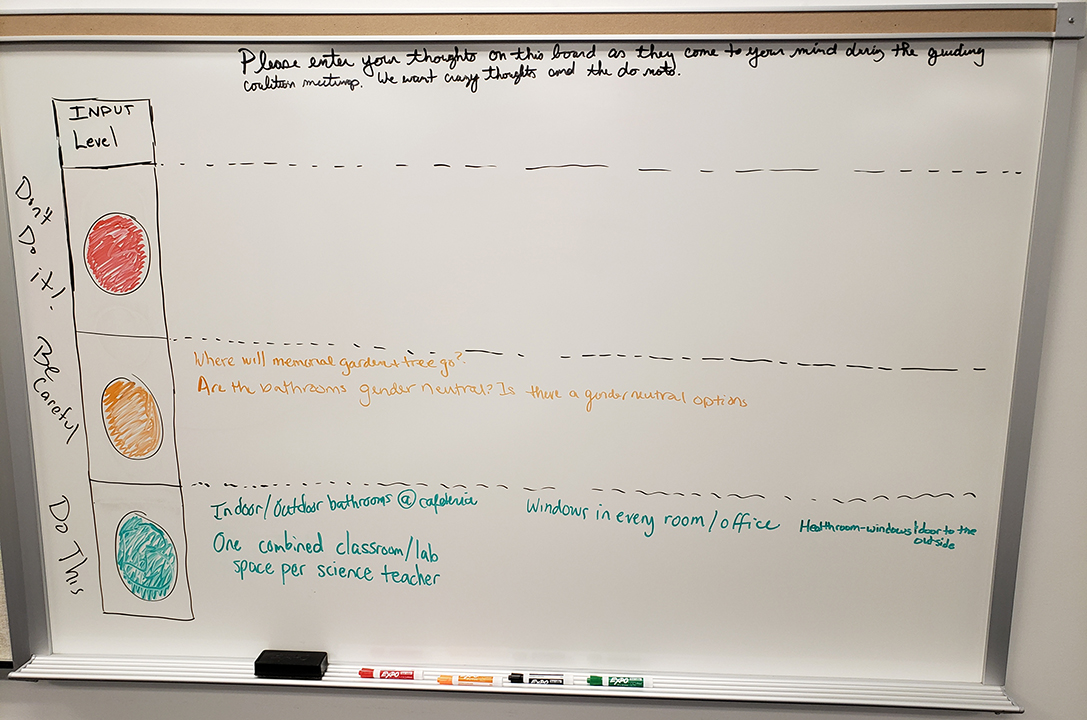 Please enter your thoughts on this board as they come to your mind during the guiding
coalition meetings. We want crazy thoughts and the do nots.
INPUT
Level
Don't
Do
it!
Where will memorial garden + tree go?
Are the bathrooms gender neutral? Is there a gender neutral options
Be
Careful
Indoor/Outdoor bathrooms @ cafeteria
Windows in every room/office
Healthroom-windows & door to the
outside
One combined classroom/lab
space per science teacher
Do This
EXPO
EXPO
EXPO
EXPO